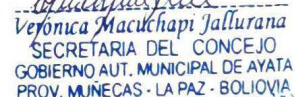 Verónica Macuchapi Jallurana
SECRETARIA DEL CONCEJO
GOBIERNO AUT. MUNICIPAL DE AYATA
PROV. MUÑECAS - LA PAZ - BOLIOVIA